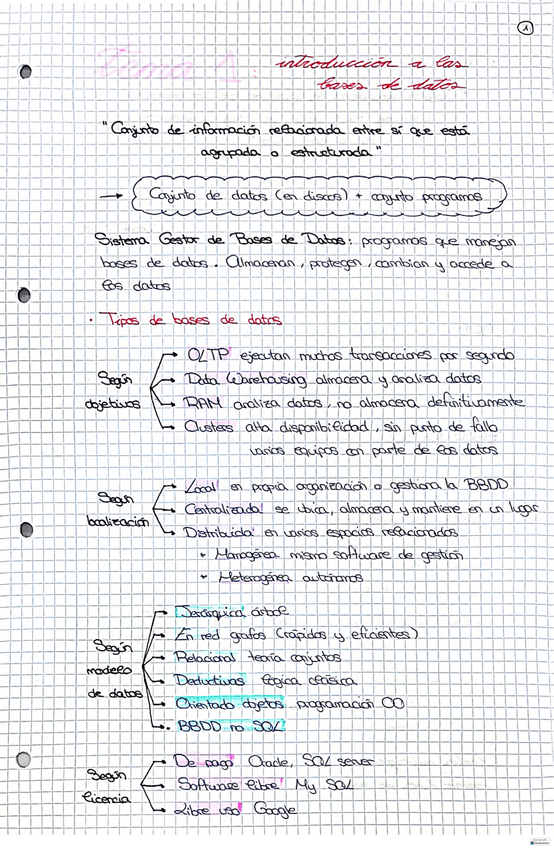 1
Tema 1: introducción a las
bases de datos
"Conjunto de información relacionada entre sí que está
agrupada o estructurada"
→ Conjunto de datos (en discos) + conjunto programas
Sistema Gestor de Bases de Datos: programas que manejan
bases de datos. Almacenan, protegen, cambian y accede a
los datos
· Tipos de bases de datos
Según
objetivos
→ OLTP ejecutan muchos transacciones por segundo
→ Data Warehousing almacena y analiza datos
→ RAM analiza datos, no almacena definitivamente
→ Clusters alta disponibilidad, sin punto de fallo
varios equipos con parte de los datos
Según
localización
→ Local en propia organización o gestiona la BBDD
→ Centralizada se ubica, almacena y mantiene en un lugar
→ Distribuida en varios espacios relacionados
+ Homogénea mismo software de gestión
+ Heterogénea autónomos
Según
modelo
de datos
→ Jerárquica árbol
→ En red grafos (rápidos y eficientes)
→ Relacional teoría conjuntos
→ Deductivas lógica clásica
→ Orientado objetos programación OO
→ BBDD no SQL
Según
licencia
→ De pago Oracle, SQL server
→ Software libre My SQL
→ Libre uso Google